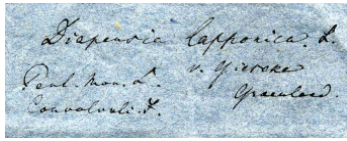 Diapensia lapponica. L.
Pent. Mon. L.
v. Giesecke
Convolvuli. J.
Groenland.